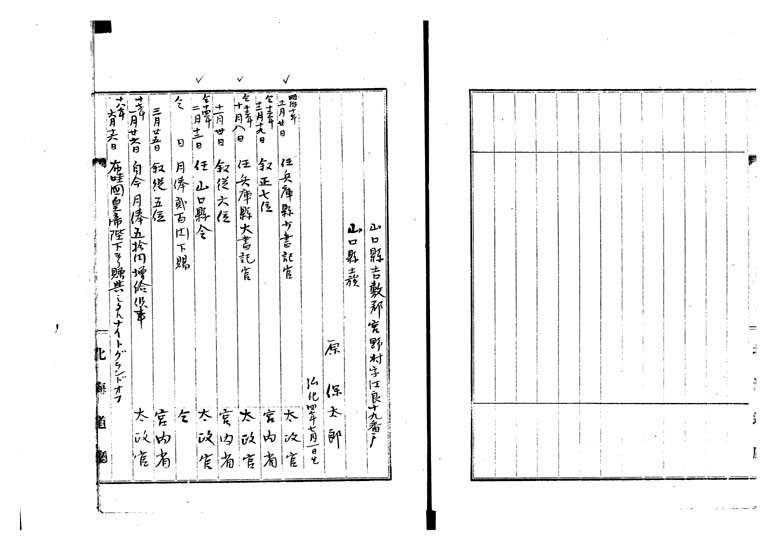 山口縣吉敷郡宮野村字江良十九番戸
山口縣士族
原 保太郎
弘化四年七月一日生
明治十年一月廿日 任兵庫縣少書記官 太政官
仝 年十二月十九日 叙正七位 宮内省
仝 年十月八日 任兵庫縣大書記官 太政官
十一月廿日 叙從六位 宮内省
仝十四年二月十三日 任山口縣令 太政官
仝 日 月俸貳百円下賜 仝
三月廿五日 叙從五位 宮内省
一月廿六日 自今月俸五拾円増給候事 太政官
十八年六月十六日 布哇國皇帝陛下ヨリ贈與シタルナイトグランドオフ
北海道廳